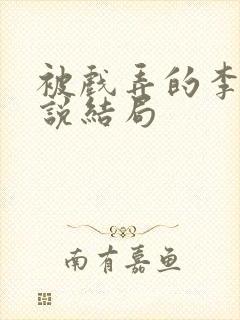 被戲弄的李
說結局
南有嘉鱼